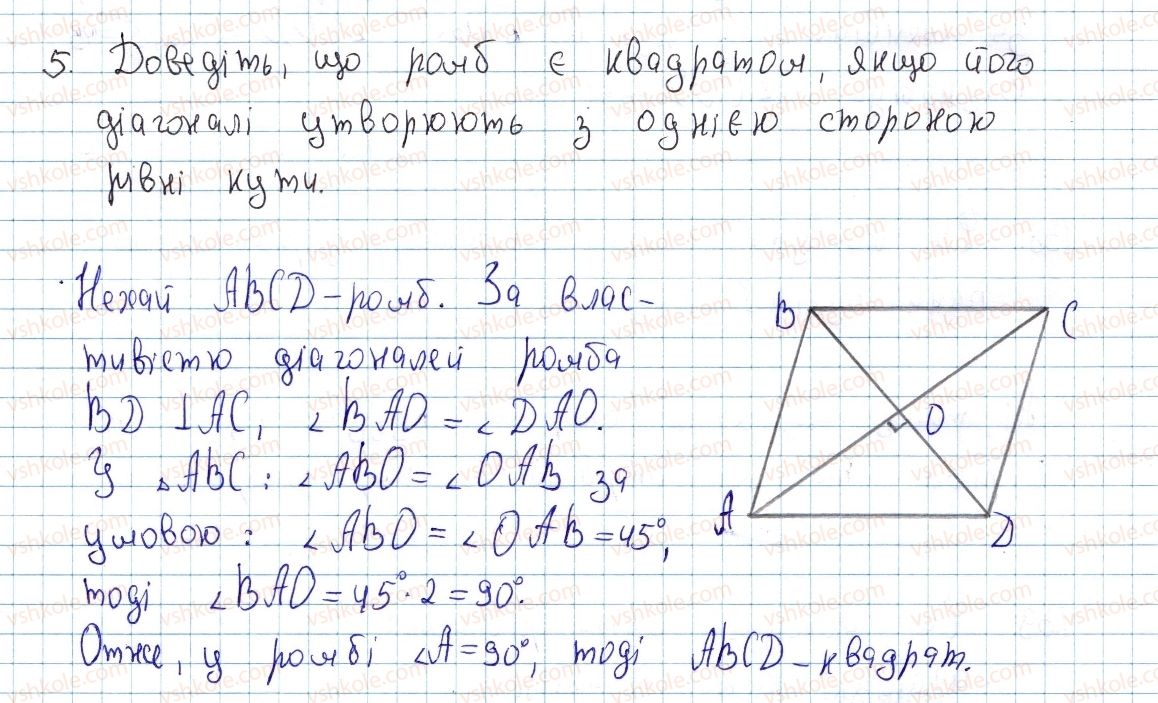 5. Доведіть, що ромб є квадратом, якщо його
діагоналі утворюють з однією стороною
рівні кути.
Нехай ABCD - ромб. За влас-
тивістю діагоналей ромба
BD ⊥ AC, ∠BAO = ∠DAO.
У △ABC: ∠ABO = ∠OAB за
умовою: ∠ABO = ∠OAB = 45°,
тоді ∠BAO = 45° · 2 = 90°.
Отже, у ромбі ∠A = 90°, тоді ABCD - квадрат.
B
C
O
A
D
vshkole.com